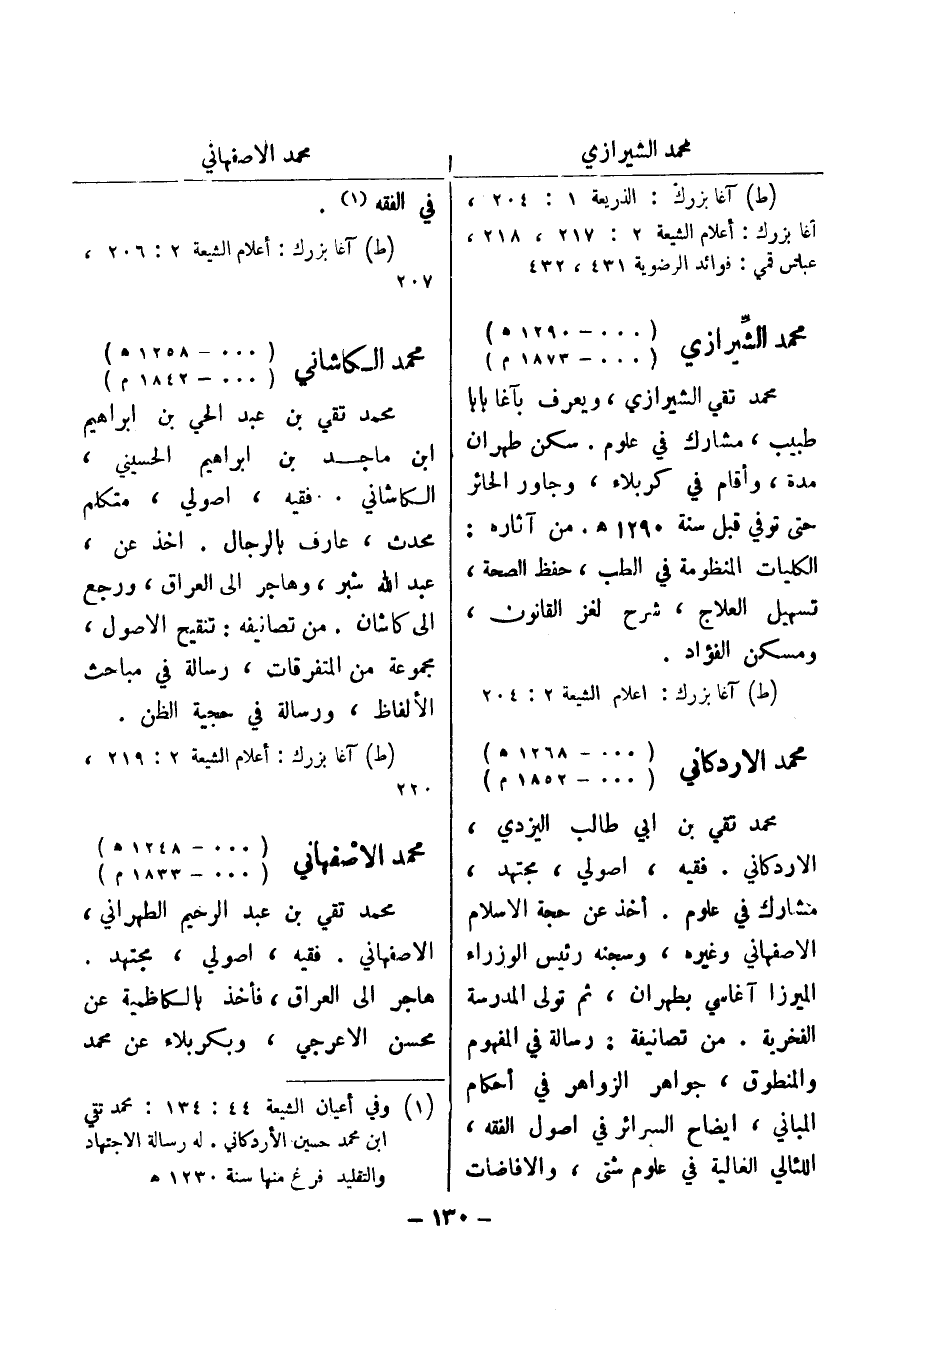 محمد الشيرازي
(ط) آغا بزرك : الذريعة ١ : ٢٠٤ ،
آغا بزرك : أعلام الشيعة ٢ : ٢١٧ ، ٢١٨ ،
عباس قمي : فوائد الرضوية ٤٣١ ، ٤٣٢
محمد الشِّيرازي ( ٠٠٠ – ١٢٩٠ ه )
( ٠٠٠ – ١٨٧٣ م )
محمد تقي الشيرازي ، ويعرف بآغا بابا
طبيب ، مشارك في علوم . سكن طهران
مدة ، وأقام في كربلاء ، وجاور الحائر
حتى توفي قبل سنة ١٢٩٠ ه . من آثاره :
الكليات المنظومة في الطب ، حفظ الصحة ،
تسهيل العلاج ، شرح لغز القانون ،
ومسكن الفؤاد .
(ط) آغا بزرك : اعلام الشيعة ٢ : ٢٠٤
محمد الاردكاني ( ٠٠٠ – ١٢٦٨ ه )
( ٠٠٠ – ١٨٥٢ م )
محمد تقي بن ابي طالب اليزدي ،
الاردكاني . فقيه ، اصولي ، مجتهد ،
مشارك في علوم . أخذ عن حجة الاسلام
الاصفهاني وغيره ، وسجنه رئيس الوزراء
الميرزا آغاسي بطهران ، ثم تولى المدرسة
الفخرية . من تصانيفة : رسالة في المفهوم
والمنطوق ، جواهر الزواهر في أحكام
المباني ، ايضاح السرائر في اصول الفقه ،
اللئالي الغالية في علوم شتى ، والافاضات
محمد الاصفهاني
في الفقه (١) .
(ط) آغا بزرك : أعلام الشيعة ٢ : ٢٠٦ ،
٢٠٧
محمد الكاشاني ( ٠٠٠ – ١٢٥٨ ه )
( ٠٠٠ – ١٨٤٢ م )
محمد تقي بن عبد الحي بن ابراهيم
ابن ماجد بن ابراهيم الحسيني ،
الكاشاني . فقيه ، اصولي ، متكلم
محدث ، عارف بالرجال . اخذ عن ،
عبد الله شبر ، وهاجر الى العراق ، ورجع
الى كاشان . من تصانيفه : تنقيح الاصول ،
مجموعة من المتفرقات ، رسالة في مباحث
الألفاظ ، ورسالة في حجية الظن .
(ط) آغا بزرك : أعلام الشيعة ٢ : ٢١٩ ،
٢٢٠
محمد الاصْفهاني ( ٠٠٠ – ١٢٤٨ ه )
( ٠٠٠ – ١٨٣٣ م )
محمد تقي بن عبد الرحيم الطهراني ،
الاصفهاني . فقيه ، اصولي ، مجتهد .
هاجر الى العراق ، فأخذ بالكاظمية عن
محسن الاعرجي ، وبكربلاء عن محمد
(١) وفي أعيان الشيعة ٤٤ : ١٣٤ : محمد تقي
ابن محمد حسين الأردكاني . له رسالة الاجتهاد
والتقليد فرغ منها سنة ١٢٣٠ ه
– ١٣٠ –